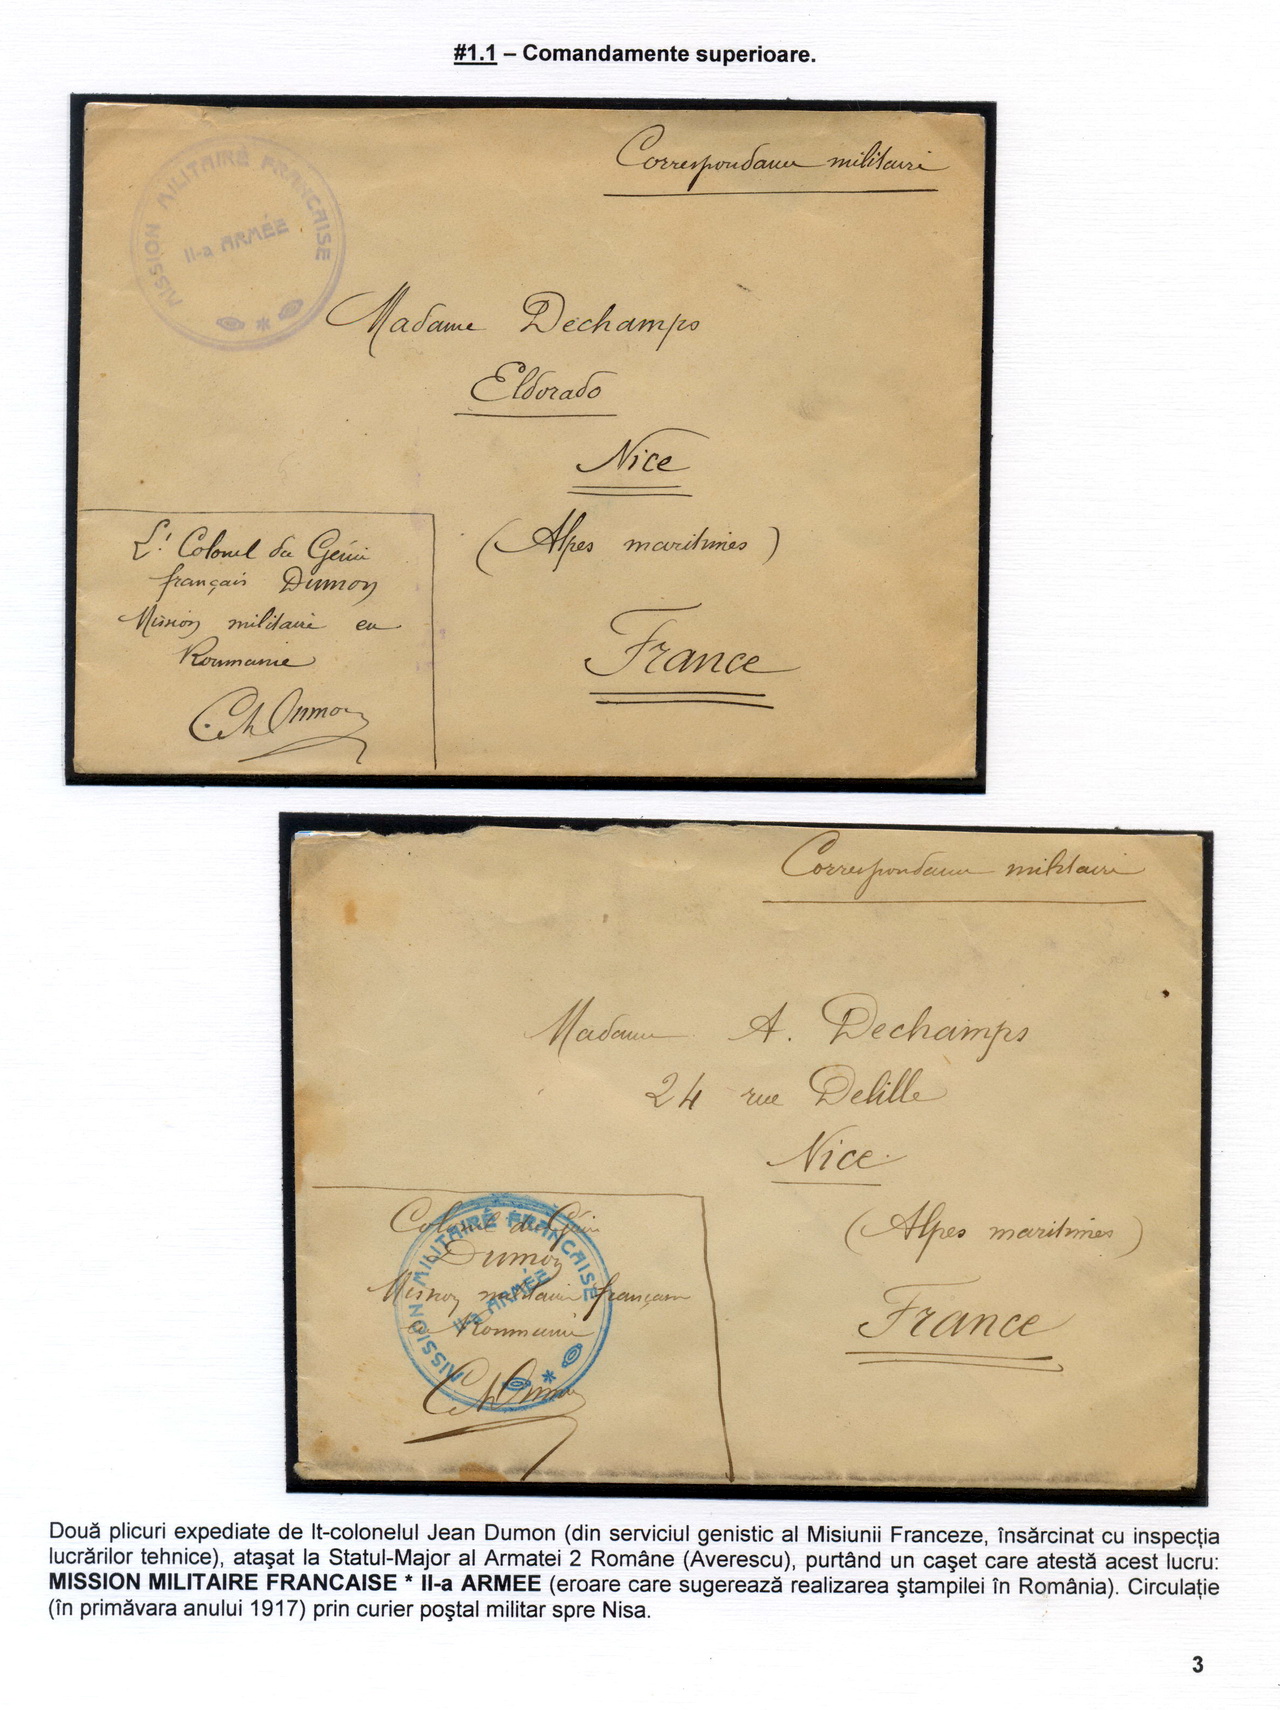 #1.1 – Comandamente superioare.
MISSION MILITAIRE FRANCAISE
II-a ARMÉE
*
Correspondance militaire
Madame Dechamps
Eldorado
Nice
(Alpes maritimes)
France
Lt Colonel du Génie
français Dumon
Mission militaire en
Roumanie
Ch Dumon
Correspondance militaire
Madame A. Dechamps
24 rue Delille
Nice
(Alpes maritimes)
France
Colonel du Génie
Dumon
Mission militaire française
Roumanie
Ch Dumon
MISSION MILITAIRE FRANCAISE
II-a ARMÉE
*
Două plicuri expediate de lt-colonelul Jean Dumon (din serviciul genistic al Misiunii Franceze, însărcinat cu inspecția
lucrărilor tehnice), atașat la Statul-Major al Armatei 2 Române (Averescu), purtând un cașet care atestă acest lucru:
MISSION MILITAIRE FRANCAISE * II-a ARMEE (eroare care sugerează realizarea ștampilei în România). Circulație
(în primăvara anului 1917) prin curier poștal militar spre Nisa.
3